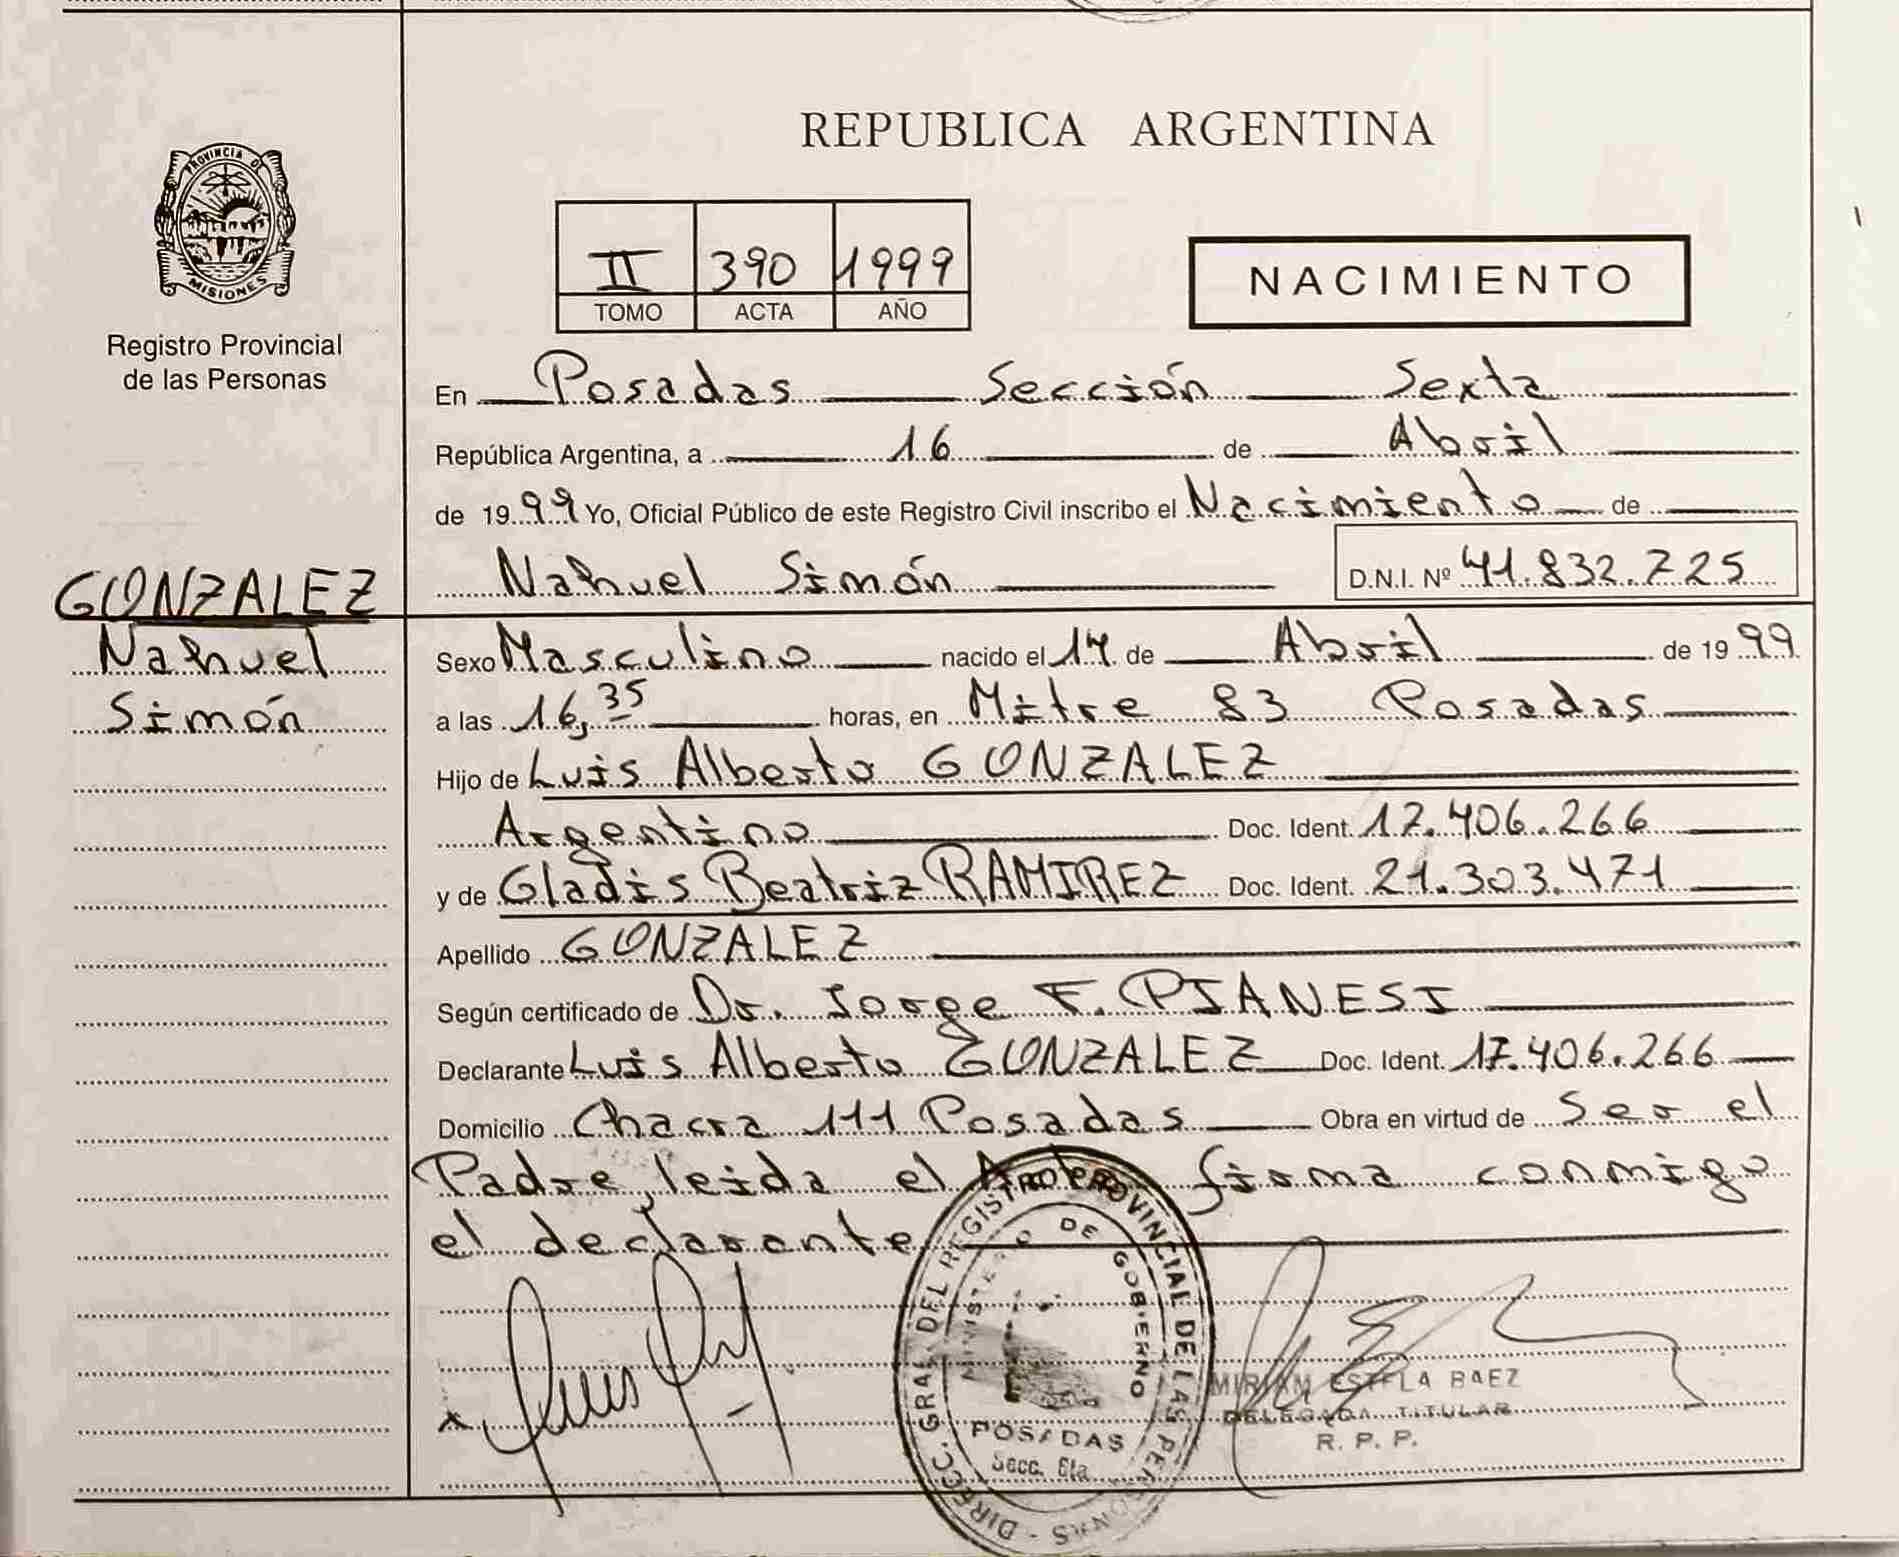 PROVINCIA DE
MISIONES
Registro Provincial
de las Personas
GONZALEZ
Nahuel
Simón
REPUBLICA ARGENTINA
II 390 1999
TOMO ACTA AÑO
NACIMIENTO
En Posadas Sección Sexta
República Argentina, a 16 de Abril
de 1999 Yo, Oficial Público de este Registro Civil inscribo el Nacimiento de
Nahuel Simón D.N.I. Nº 41.832.725
Sexo Masculino nacido el 14 de Abril de 1999
a las 16,35 horas, en Mitre 83 Posadas
Hijo de Luis Alberto GONZALEZ
Argentino Doc. Ident. 17.406.266
y de Gladis Beatriz RAMIREZ Doc. Ident. 21.303.471
Apellido GONZALEZ
Según certificado de Dr. Jorge F. PIANESI
Declarante Luis Alberto GONZALEZ Doc. Ident. 17.406.266
Domicilio Chacra 111 Posadas Obra en virtud de Ser el
Padre, leida el Acta firma conmigo
el declarante
DIRECC. GRAL. DEL REGISTRO PROVINCIAL DE LAS PERSONAS
MINISTERIO DE GOBIERNO
POSADAS
Secc. 6ta
MIRIAM ESTELA BAEZ
DELEGADA TITULAR
R. P. P.